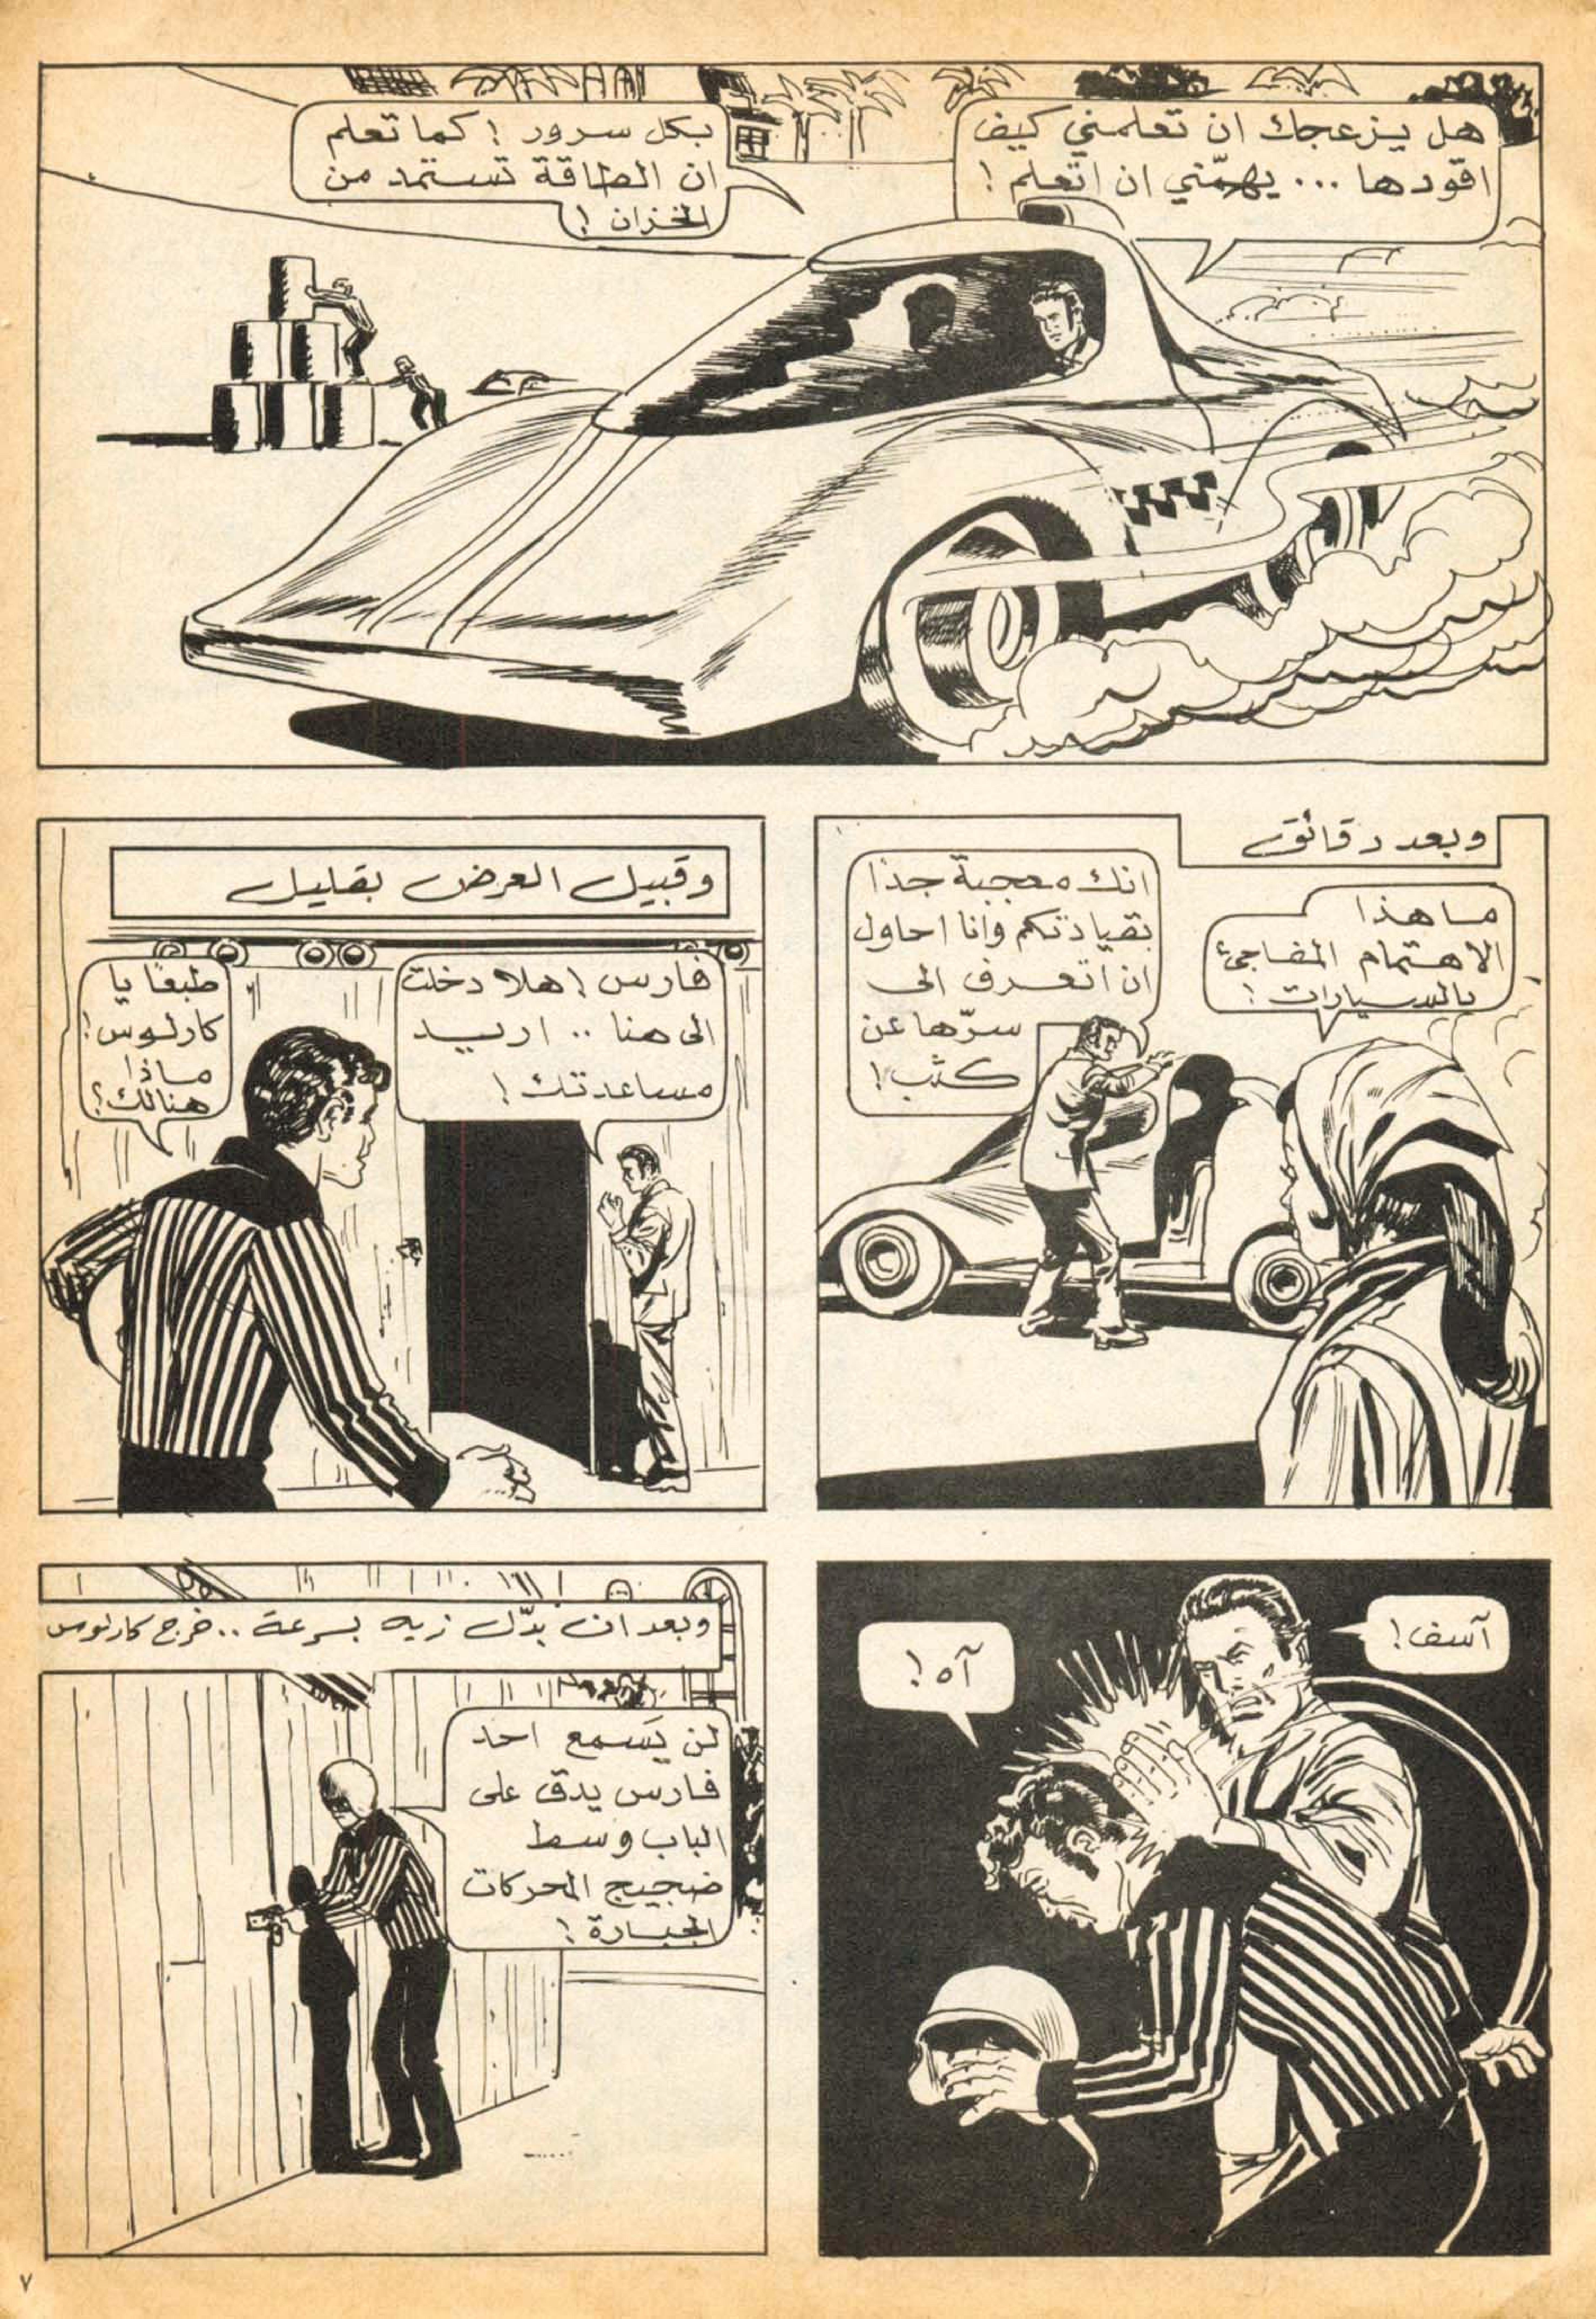 هل يزعجك ان تعلمني كيف
اقودها ... يهمّني ان اتعلم !
بكل سرور ! كما تعلم
ان الطاقة تستمد من
الخزان !
وبعد دقائق
ما هذا
الاهتمام المفاجئ
بالسيارات !
انك معجبة جدا
بقيادتكم وانا احاول
ان اتعرف الى
سرّها عن
كثب !
وقبيل العرض بقليل
فارس ! هلا دخلت
الى هنا .. اريد
مساعدتك !
طبعًا يا
كارلوس !
ماذا
هنالك ؟
آسف !
آه !
وبعد ان بدّل زيه بسرعة .. خرج كارلوس
لن يَسمع احد
فارس يدق على
الباب وسط
ضجيج المحركات
الجبارة !
٧